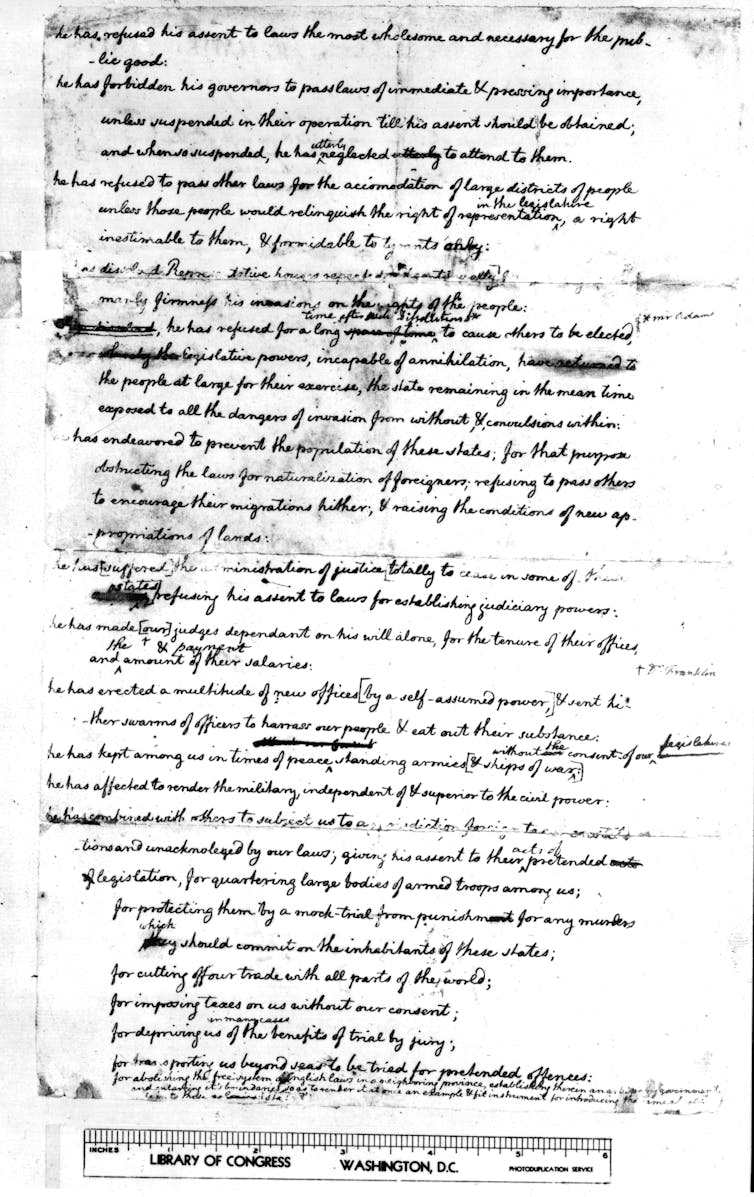 he has refused his assent to laws the most wholesome and necessary for the pub-
-lic good:
he has forbidden his governors to pass laws of immediate & pressing importance,
unless suspended in their operation till his assent should be obtained;
utterly
and when so suspended, he has neglected utterly to attend to them.
he has refused to pass other laws for the accomodation of large districts of people
in the legislature
unless those people would relinquish the right of representation, a right
inestimable to them, & formidable to tyrants only:
has dissolved Representative houses repeatedly
manly firmness his invasions on the rights of the people:
time after such dissolutions*
* mr Adams
he has refused for a long space of time, to cause others to be elected,
whereby the legislative powers, incapable of annihilation, have returned to
the people at large for their exercise, the state remaining in the mean time
exposed to all the dangers of invasion from without & convulsions within:
has endeavored to prevent the population of these states; for that purpose
obstructing the laws for naturalization of foreigners; refusing to pass others
to encourage their migrations hither; & raising the conditions of new ap-
-propriations of lands:
he has [suffered] the administration of justice [totally to cease in some of these
states]
refusing his assent to laws for establishing judiciary powers:
he has made [our] judges dependant on his will alone, for the tenure of their offices,
the + & payment
and amount of their salaries:
+ Dr. Franklin
he has erected a multitude of new offices [by a self-assumed power,] & sent hi-
-ther swarms of officers to harrass our people & eat out their substance:
without the consent of our legislatures
he has kept among us in times of peace, standing armies [& ships of war:]
he has affected to render the military, independent of & superior to the civil power:
he has combined with others to subject us to a jurisdiction foreign to our constitu-
-tions and unacknoleged by our laws; giving his assent to their pretended acts
acts of
of legislation, for quartering large bodies of armed troops among us;
for protecting them by a mock-trial from punishment for any murders
which
they should commit on the inhabitants of these states;
for cutting off our trade with all parts of the world;
for imposing taxes on us without our consent;
in many cases
for depriving us of the benefits of trial by jury;
for transporting us beyond seas to be tried for pretended offences:
for abolishing the free system of English laws in a neighboring province, establishing therein an arbitrary government,
and enlarging it's boundaries so as to render it at once an example & fit instrument for introducing the same
INCHES 1 2 3 4 5 6
LIBRARY OF CONGRESS WASHINGTON, D.C. PHOTODUPLICATION SERVICE